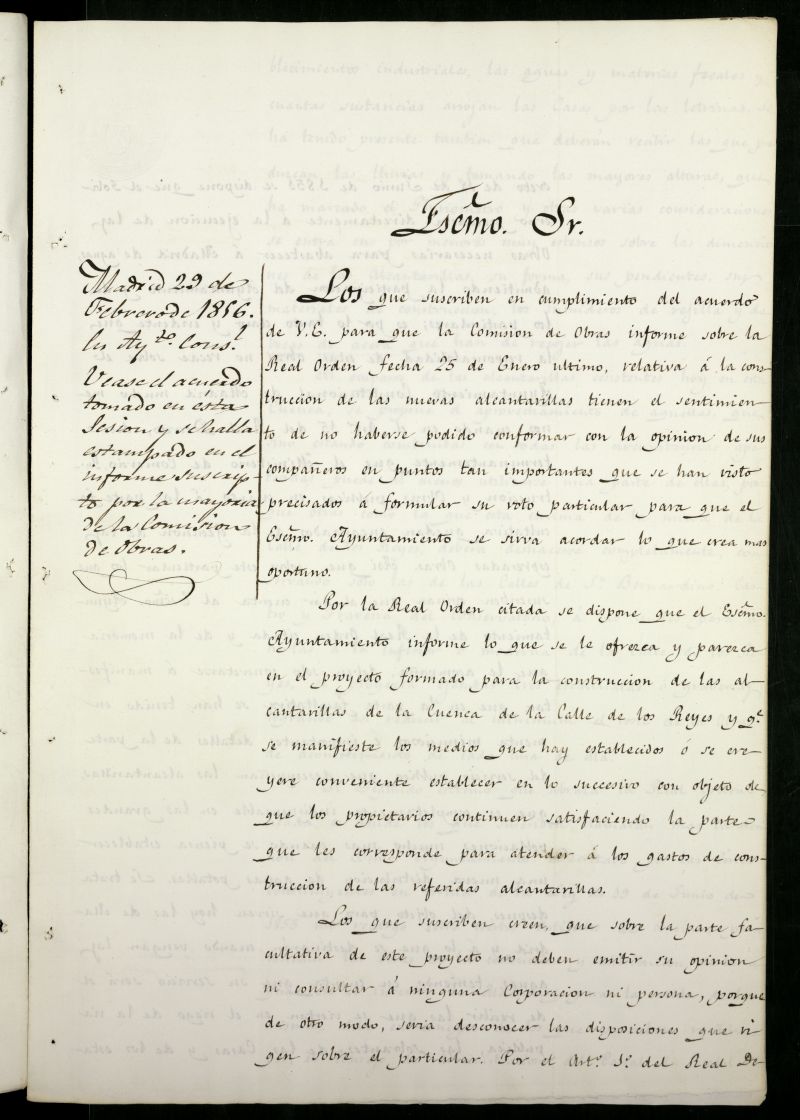 Escmo. Sr.
Madrid 29 de
Febrero de 1856.
En Ay.to Cons.l
Vease el acuerdo
tomado en ésta
Sesion y se halla
estampado en el
informe suscrip-
to por la mayoria
de la Comision
de Obras.
Los que suscriben en cumplimiento del acuerdo
de V.E. para que la Comision de Obras informe sobre la
Real Orden fecha 25 de Enero ultimo, relativa á la cons-
truccion de las nuevas alcantarillas tienen el sentimien-
to de no haberse podido conformar con la opinion de sus
compañeros en puntos tan importantes que se han visto
precisados á formular su voto particular para que el
Escmo. Ayuntamiento se sirva acordar lo que crea mas
oportuno.
Por la Real Orden citada se dispone que el Escmo.
Ayuntamiento informe lo que se le ofrezca y parezca
en el proyecto formado para la construccion de las al-
cantarillas de la Cuenca de la Calle de los Reyes y q.e
se manifieste los medios que hay establecidos ó se cre-
yere conveniente establecer en lo succesivo con objeto de
que los propietarios continuen satisfaciendo la parte
que les corresponde para atender á los gastos de cons-
truccion de las referidas alcantarillas.
Los que suscriben creen, que sobre la parte fa-
cultativa de este proyecto no deben emitir su opinion
ni consultar á ninguna Corporacion ni persona, porque
de otro modo, seria desconocer las disposiciones que ri-
gen sobre el particular. Por el Art.o 1.o del Real De-